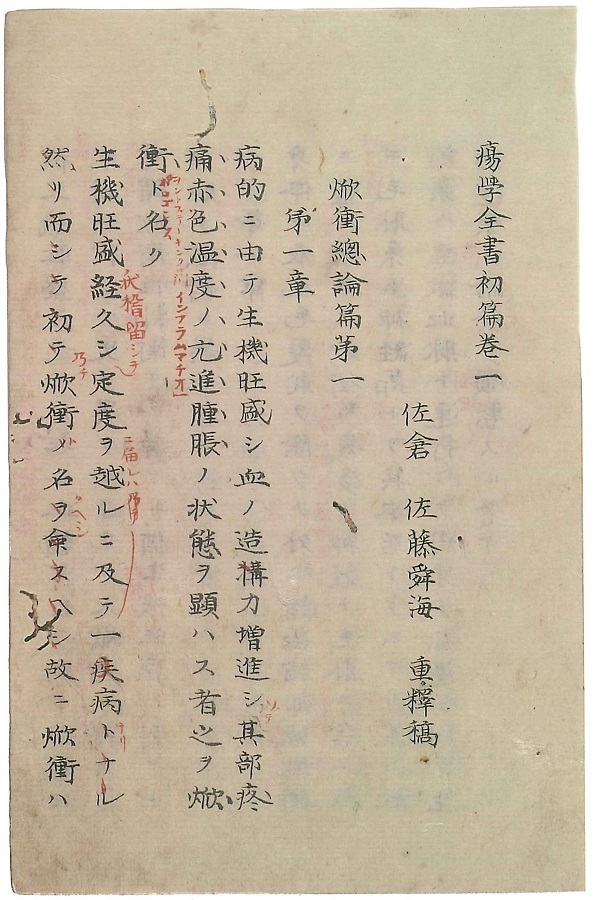 瘍学全書初篇巻一
佐倉 佐藤舜海 重釋稿
焮衝總論篇第一
第一章
病的ニ由テ生機旺盛シ血ノ造構力増進シ其部疼
痛赤色温度ノ亢進腫脹ノ状態ヲ顕ハス者之ヲ焮
衝ト名ク
インフラムマチオ
生機旺盛経久シ定度ヲ越ルニ及テ一疾病トナル
然リ而シテ初テ焮衝ノ名ヲ命スヘシ故ニ焮衝ハ